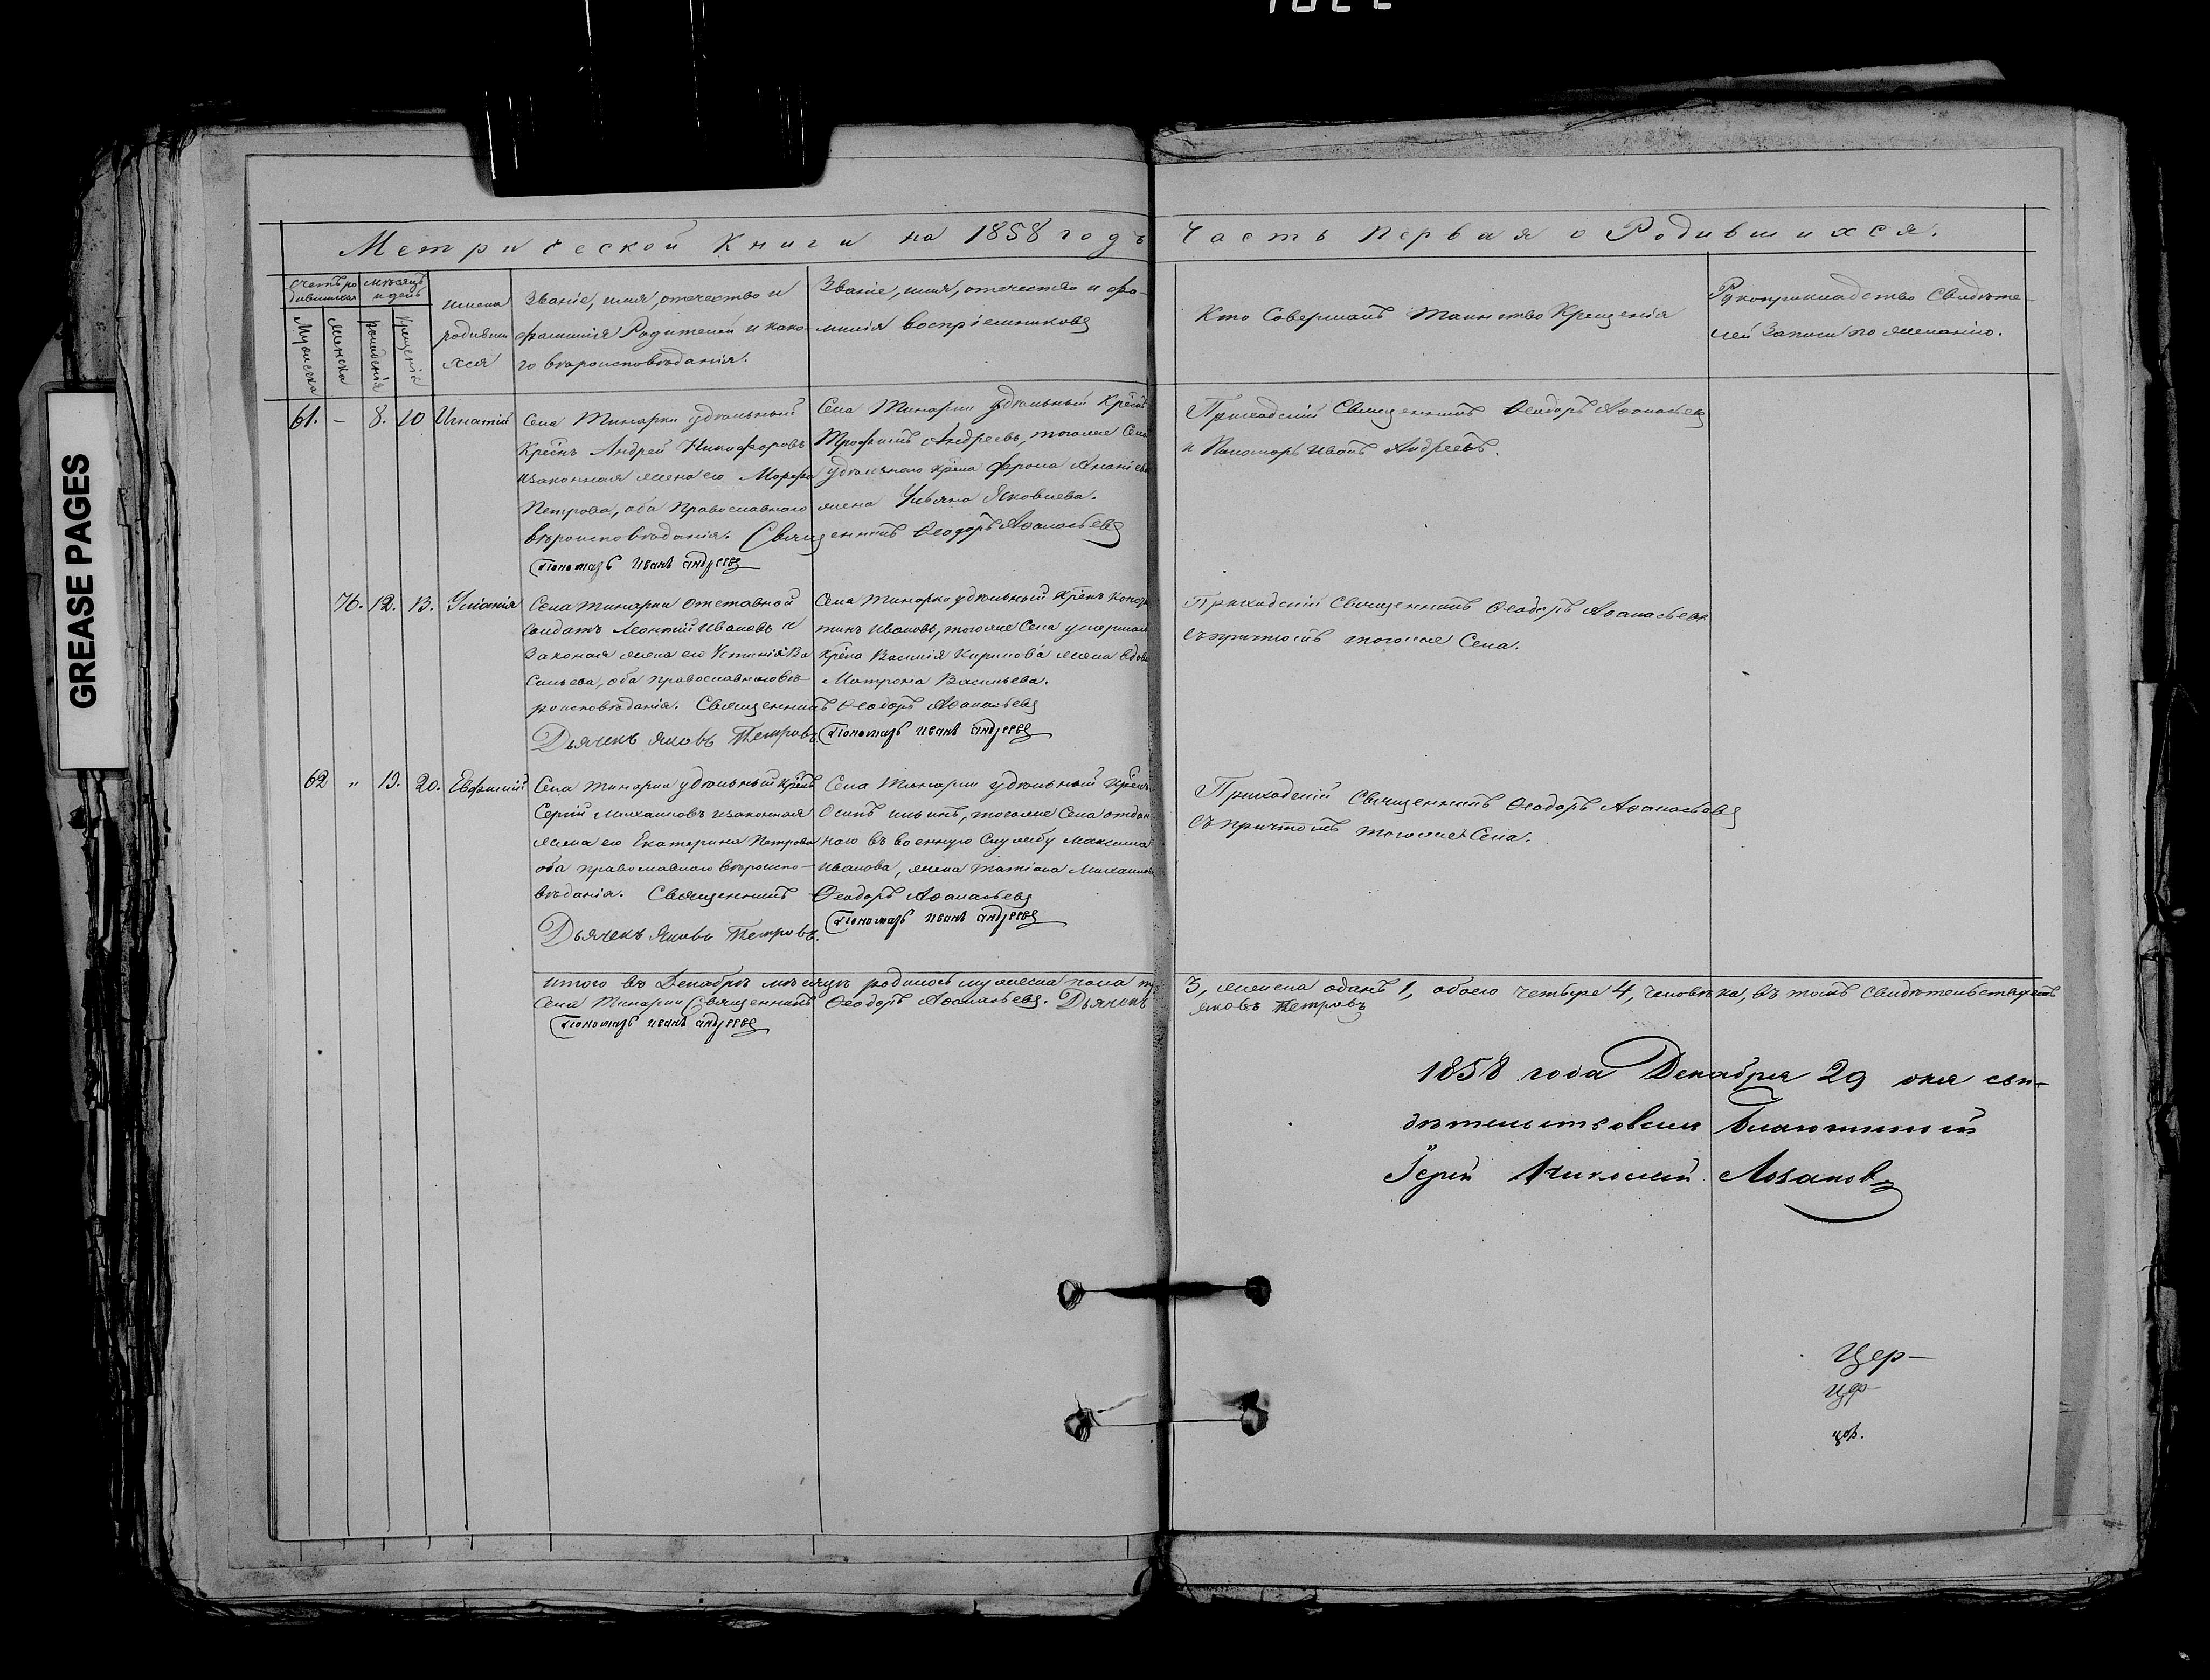 GREASE PAGES
Метрической Книги на 1858 годъ
Часть Первая о Родившихся.
Счетъ ро
дившихся
Мѣсяцъ
и день
Мужеска
Женска
рожденія
Крещенія
имена
родивши
хся
Званіе, имя, отчество и
фамилія Родителей и како-
го вѣроисповѣданія.
Званіе, имя, отечество и фа-
милія воспріемниковъ
Кто Совершалъ Таинство Крещенія
Рукоприкладство Свидѣте-
лей Записи по желанію.
61. – 8. 10 Игнатій
Села Тинарки удѣльный
Крѣнъ Андрей Никифоровъ
изаконная жена его Марфа
Петрова, оба Православнаго
вѣроисповѣданія. Священникъ Ѳеодоръ Аѳанасьевъ
Пономарь Иванъ Андреевъ
Села Тинарки удѣльный Крѣнъ
Трофимъ Андреевъ, тогоже Села
удѣльнаго Крѣна Фрола Ананіева
жена Ульяна Яковлева.
Приходскій Священникъ Ѳеодоръ Аѳанасьевъ
и Пономарь Иванъ Андреевъ.
76. 12. 13. Уліанія
Села Тинарки отставной
Солдатъ Леонтій Ивановъ и
Законая жена его Устинія Ва
сильева, оба православнаго вѣ-
роисповѣданія. Священникъ Ѳеодоръ Аѳанасьевъ
Дьячекъ Яковъ Петровъ Пономарь Иванъ Андреевъ
Села Тинарки удѣльный Крѣнъ
тинъ Ивановъ, тогоже Села умершаго
Крѣна Василія Кирилова жена вдова
Матрона Васильева.
Приходскій Священникъ Ѳеодоръ Аѳанасьевъ
Съ причтомъ тогоже Села.
62 " 19. 20. Евфимій
Села Тинарки удѣльный Крѣнъ
Сергій Михаиловъ изаконная
жена его Екатерина Петрова
оба православнаго вѣроиспо-
вѣданія. Священникъ Ѳеодоръ Аѳанасьевъ
Дьячекъ Яковъ Петровъ. Пономарь Иванъ Андреевъ
Села Тинарки удѣльный Крѣнъ
Осипъ Ильинъ, тогоже Села отдан
наго въ военную Службу Максима
Иванова, жена Татіана Михаилова
Приходскій Священникъ Ѳеодоръ Аѳанасьевъ
Съ причтомъ тогоже Села.
Итого въ Декабрѣ мѣсяцѣ родилось мужеска пола 3, женска одинъ 1, обоего четыре 4, человѣка, въ томъ Свидѣтельствуемъ
Села Тинарки Священникъ Ѳеодоръ Аѳанасьевъ. Дьячекъ Яковъ Петровъ
Пономарь Иванъ Андреевъ
1858 года Декабря 29 дня сви-
дѣтельствовалъ Благочинный
Іерей Николай Лозановъ
Цер-